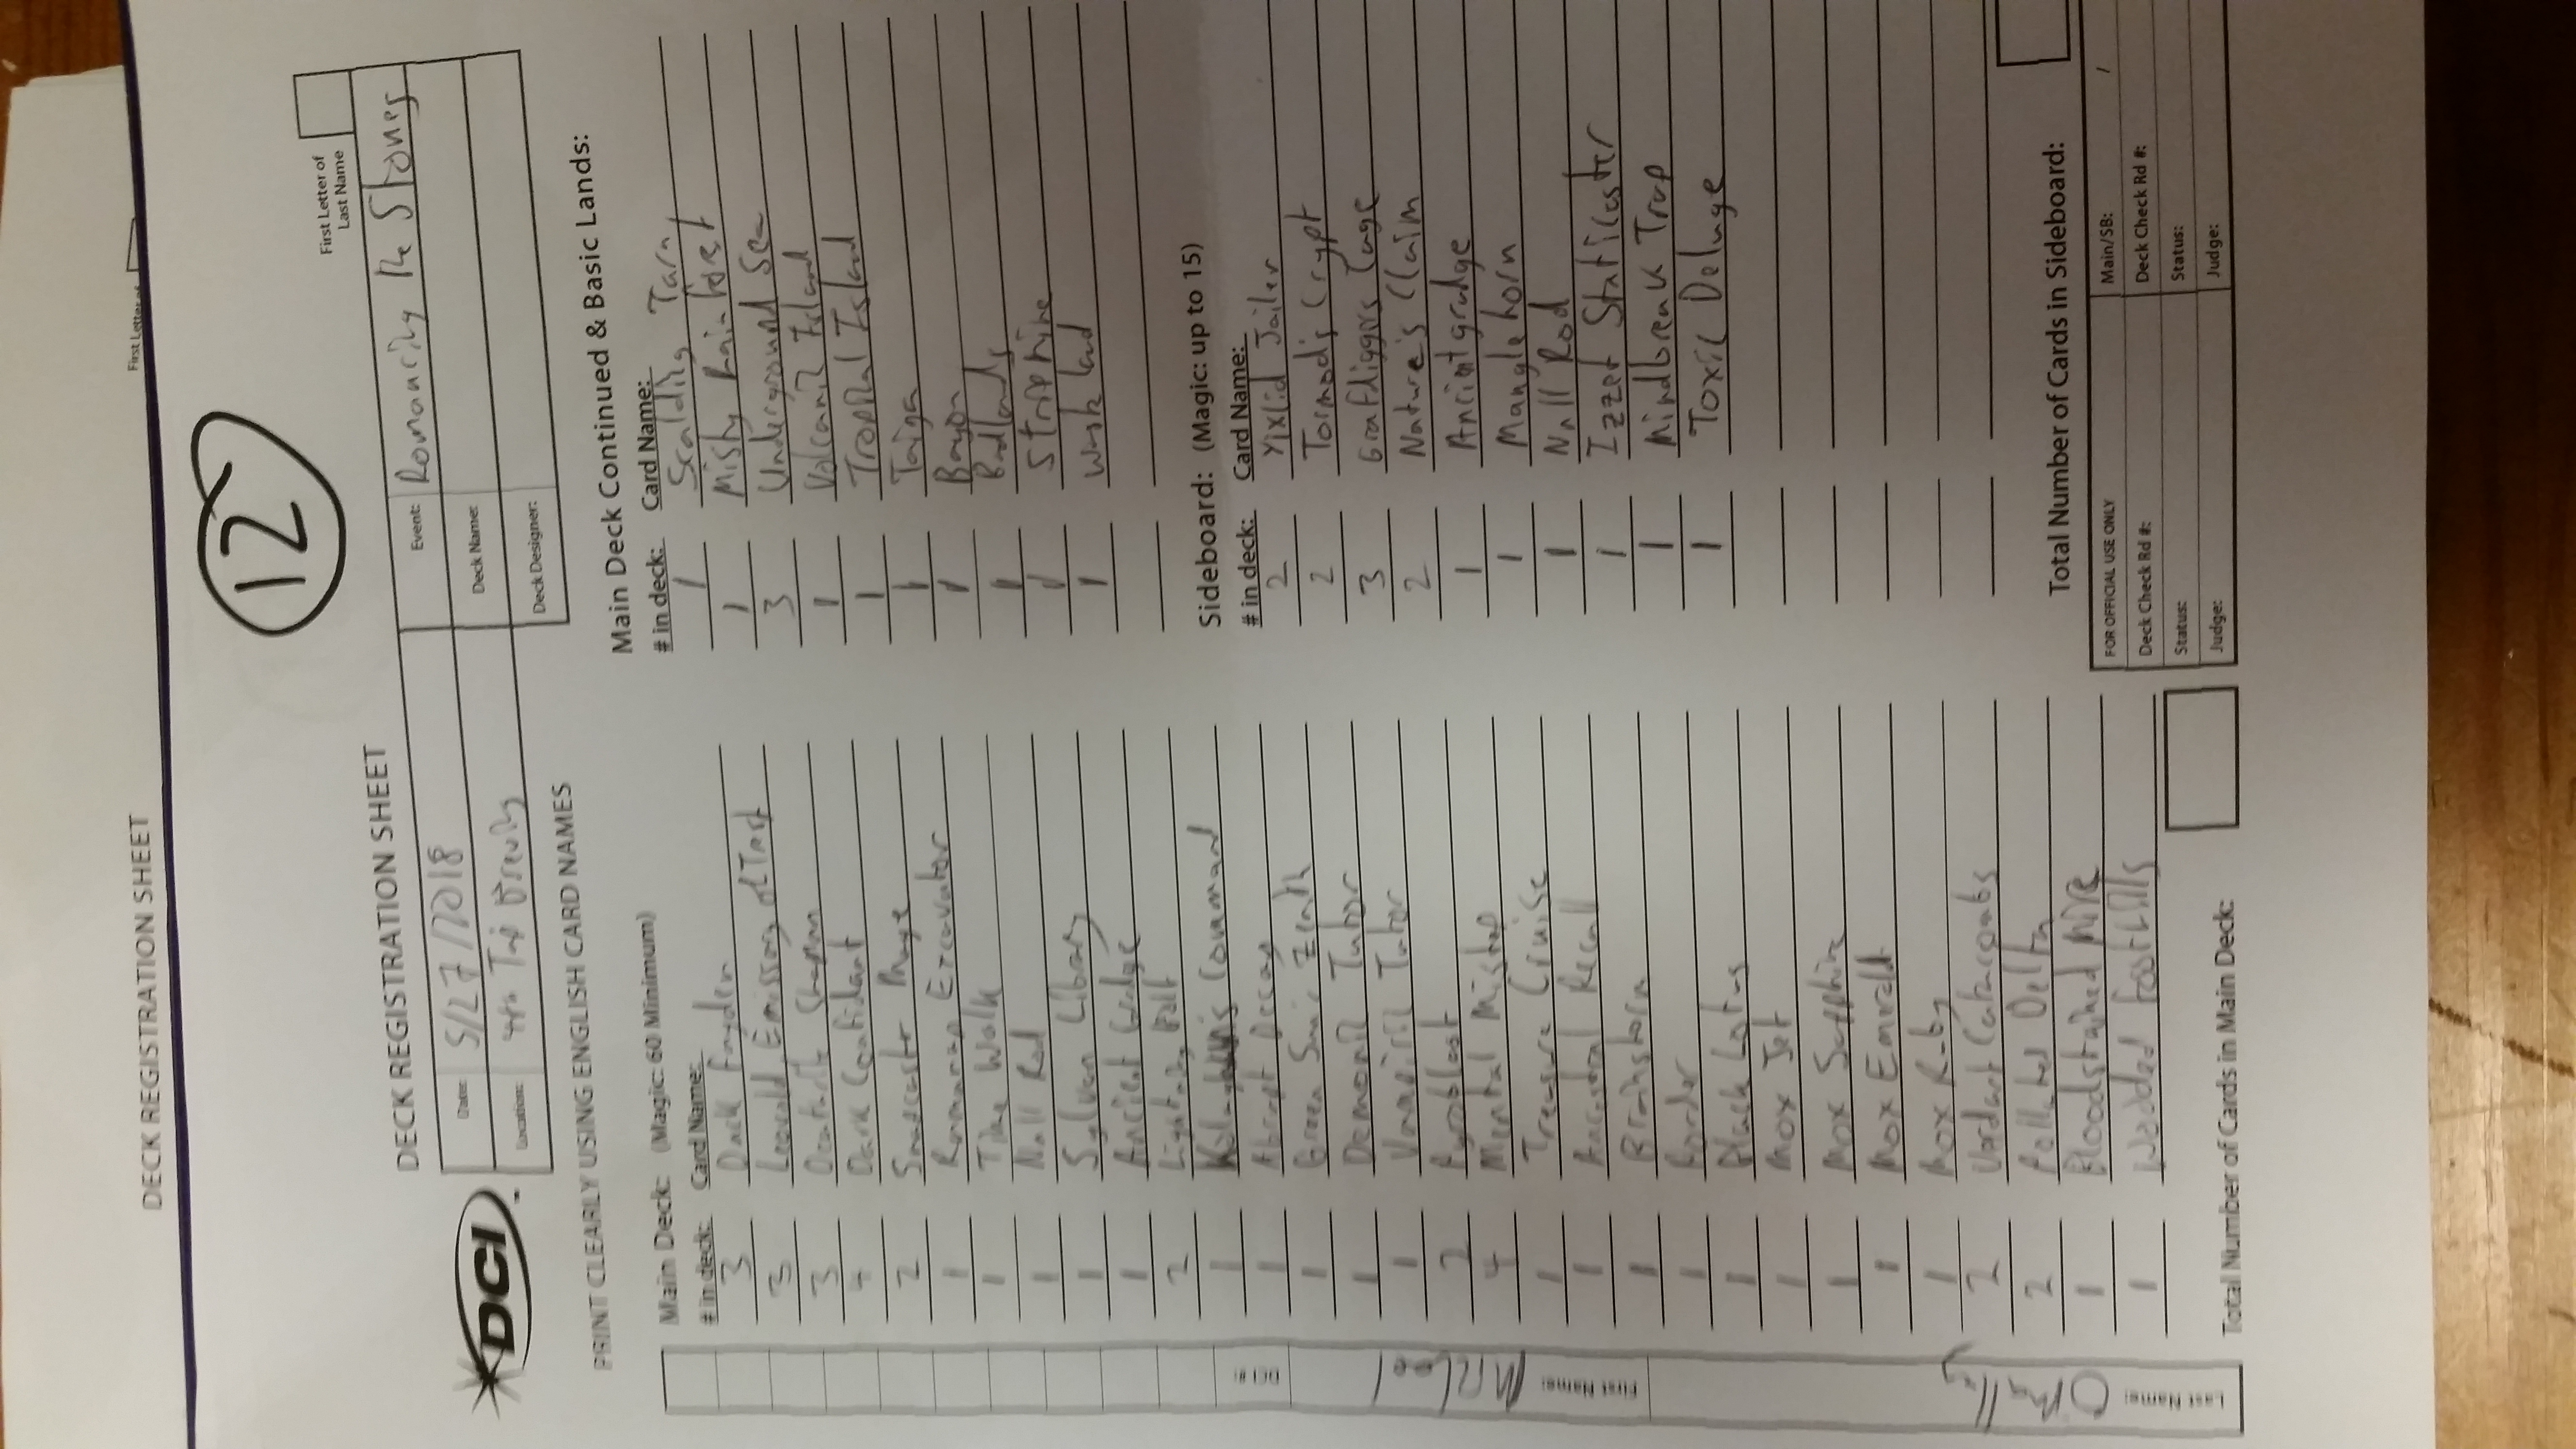 DECK REGISTRATION SHEET
First Letter of
12
First Letter of
Last Name
DECK REGISTRATION SHEET
DCI
Date: 5/27/2018
Location: 4th Tap Brewing
Event: Romancing the Stones
Deck Name:
Deck Designer:
PRINT CLEARLY USING ENGLISH CARD NAMES
Main Deck: (Magic: 60 Minimum)
# in deck: Card Name:
3 Dack Fayden
3 Leovold, Emissary of Trest
3 Deathrite Shaman
4 Dark Confidant
2 Snapcaster Mage
1 Ramunap Excavator
1 Time Walk
1 Null Rod
1 Sylvan Library
1 Ancient Grudge
2 Lightning Bolt
1 Kolaghan's Command
1 Abrupt Decay
1 Green Sun's Zenith
1 Demonic Tutor
1 Vampiric Tutor
2 Pyroblast
4 Mental Mistep
1 Treasure Cruise
1 Ancestral Recall
1 Brainstorm
1 Ponder
1 Black Lotus
1 Mox Jet
1 Mox Sapphire
1 Mox Emerald
1 Mox Ruby
2 Verdant Catacombs
2 Polluted Delta
1 Bloodstained Mire
1 Wooded Foothills
Total Number of Cards in Main Deck:
DCI #:
First Name:
Last Name: OMalley
Main Deck Continued & Basic Lands:
# in deck: Card Name:
1 Scalding Tarn
1 Misty Rainforest
3 Underground Sea
1 Volcanic Island
1 Tropical Island
1 Taiga
1 Bayou
1 Badlands
1 Strip Mine
1 Wasteland
Sideboard: (Magic: up to 15)
# in deck: Card Name:
2 Yixlid Jailer
2 Tormod's Crypt
3 Grafdiggers Cage
2 Nature's Claim
1 Ancient grudge
1 Manglehorn
1 Null Rod
1 Izzet Staticaster
1 Mindbreak Trap
1 Toxic Deluge
Total Number of Cards in Sideboard:
FOR OFFICIAL USE ONLY
Main/SB: /
Deck Check Rd #:
Deck Check Rd #:
Status:
Status:
Judge:
Judge: